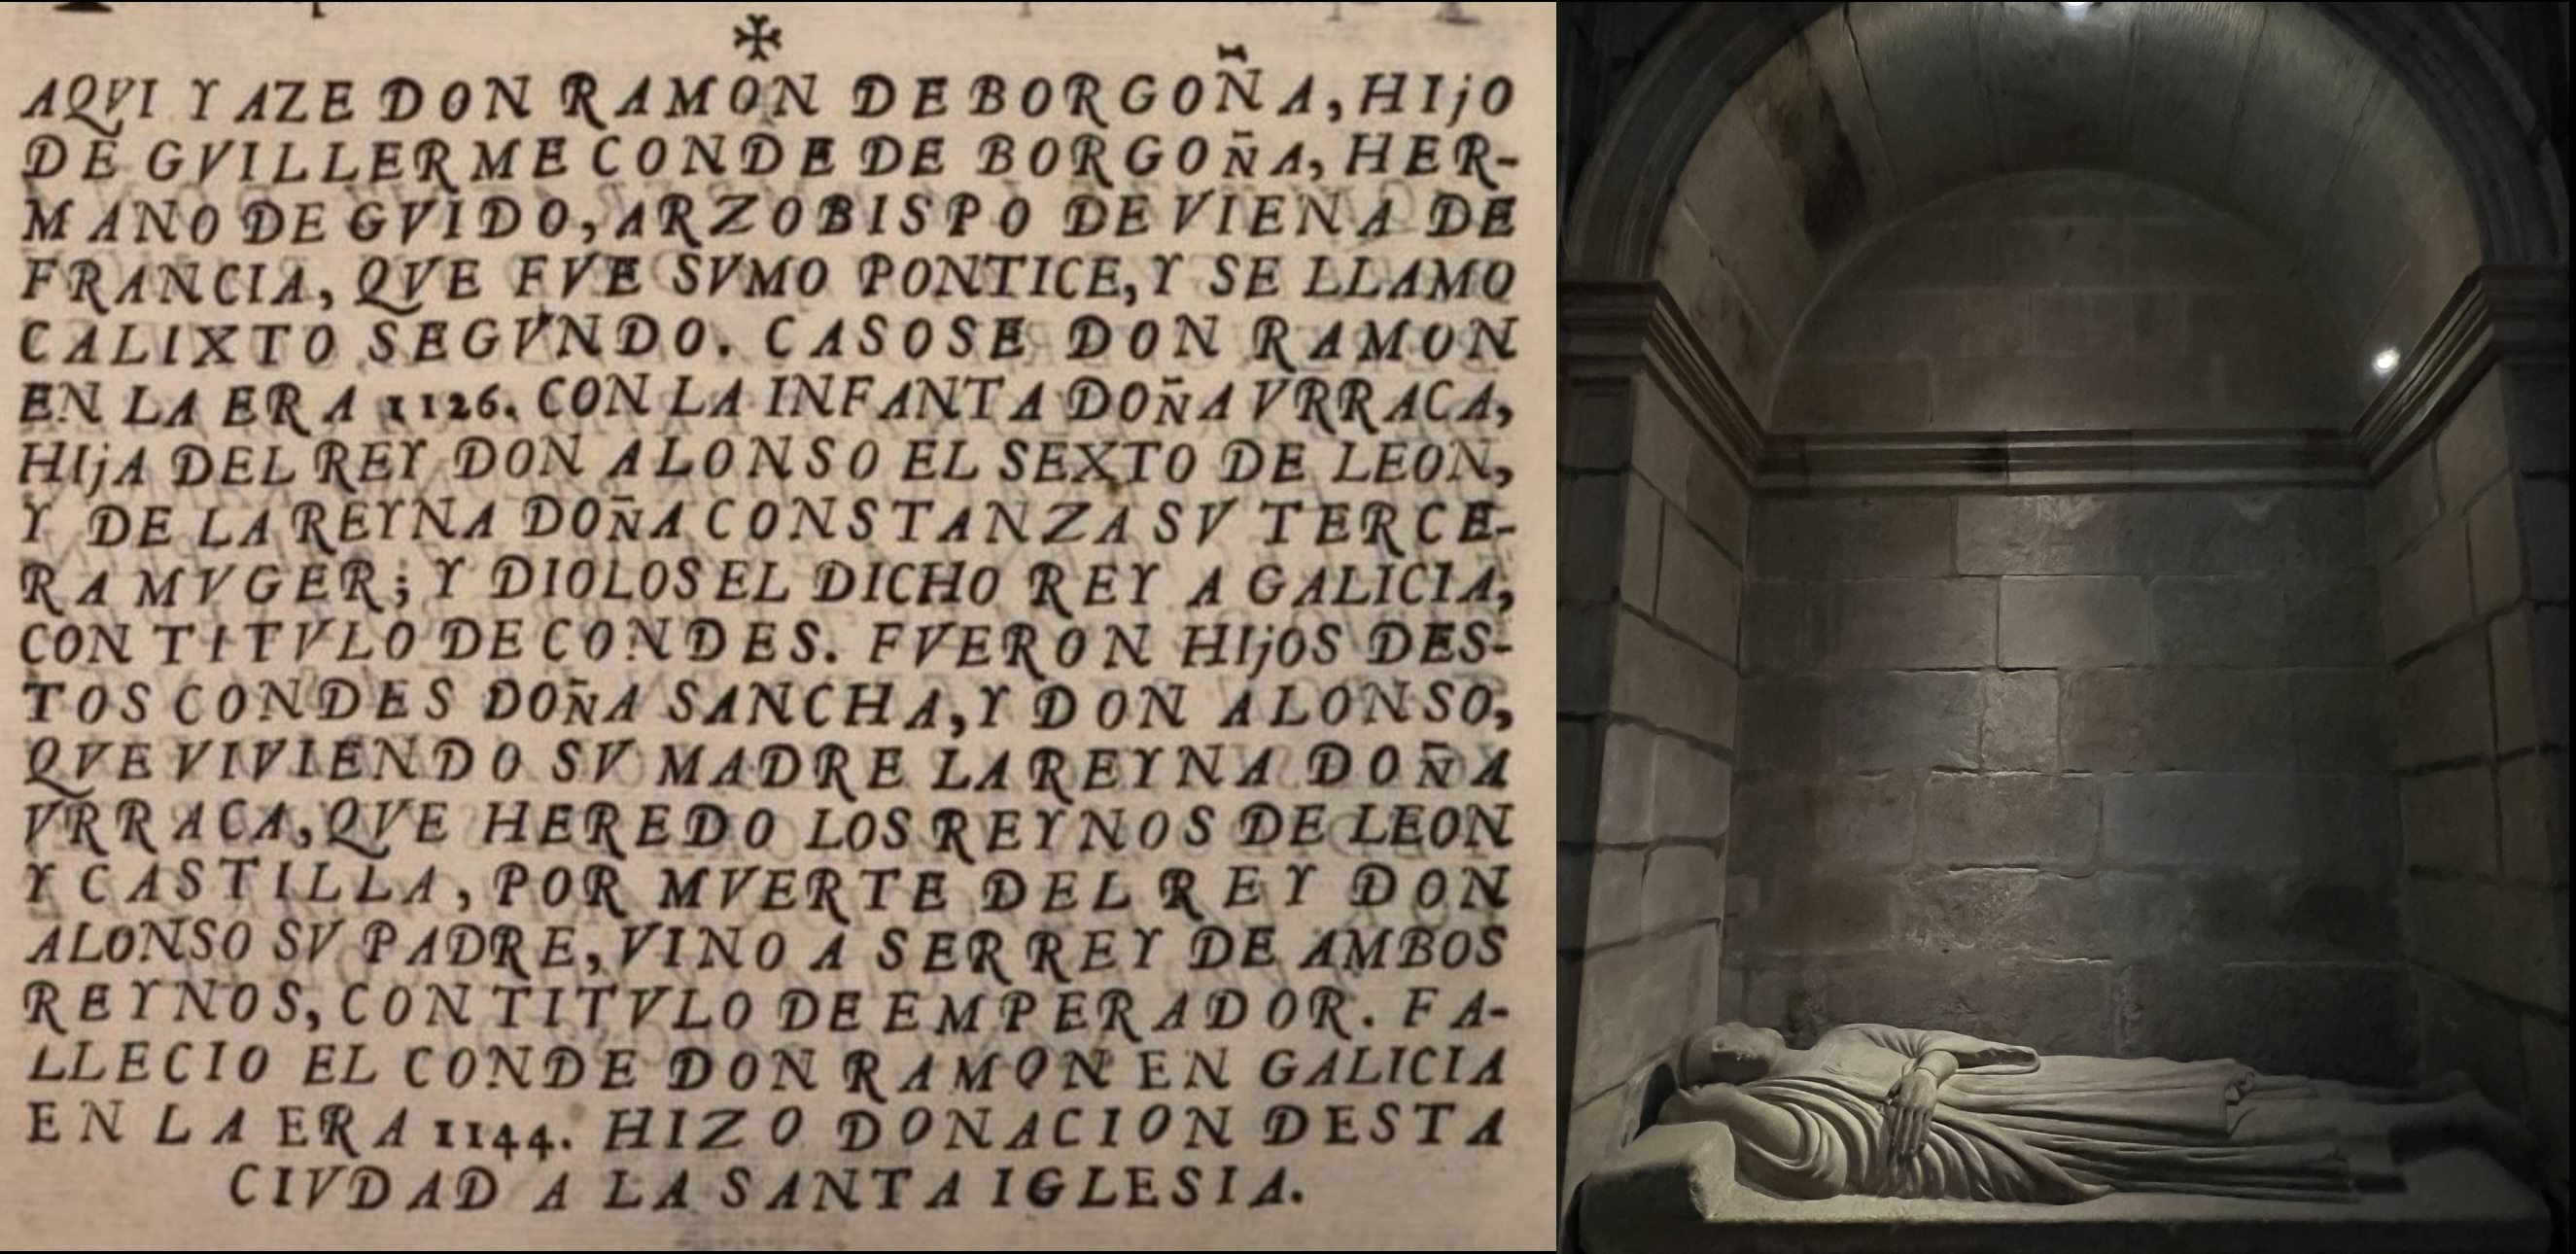 AQVI YAZE DON RAMON DE BORGOÑA, HIjO
DE GVILLERME CONDE DE BORGOÑA, HER-
MANO DE GVIDO, ARZOBISPO DE VIENA DE
FRANCIA, QVE FVE SVMO PONTICE, Y SE LLAMO
CALIXTO SEGVNDO. CASOSE DON RAMON
EN LA ERA 1126. CON LA INFANTA DOÑA VRRACA,
HIjA DEL REY DON ALONSO EL SEXTO DE LEON,
Y DE LA REYNA DOÑA CONSTANZA SV TERCE-
RA MVGER; Y DIOLOS EL DICHO REY A GALICIA,
CON TITVLO DE CONDES. FVERON HIjOS DES-
TOS CONDES DOÑA SANCHA, Y DON ALONSO,
QVE VIVIENDO SV MADRE LA REYNA DOÑA
VRRACA, QVE HEREDO LOS REYNOS DE LEON
Y CASTILLA, POR MVERTE DEL REY DON
ALONSO SV PADRE, VINO A SER REY DE AMBOS
REYNOS, CON TITVLO DE EMPERADOR. FA-
LLECIO EL CONDE DON RAMON EN GALICIA
EN LA ERA 1144. HIZO DONACION DESTA
CIVDAD A LA SANTA IGLESIA.